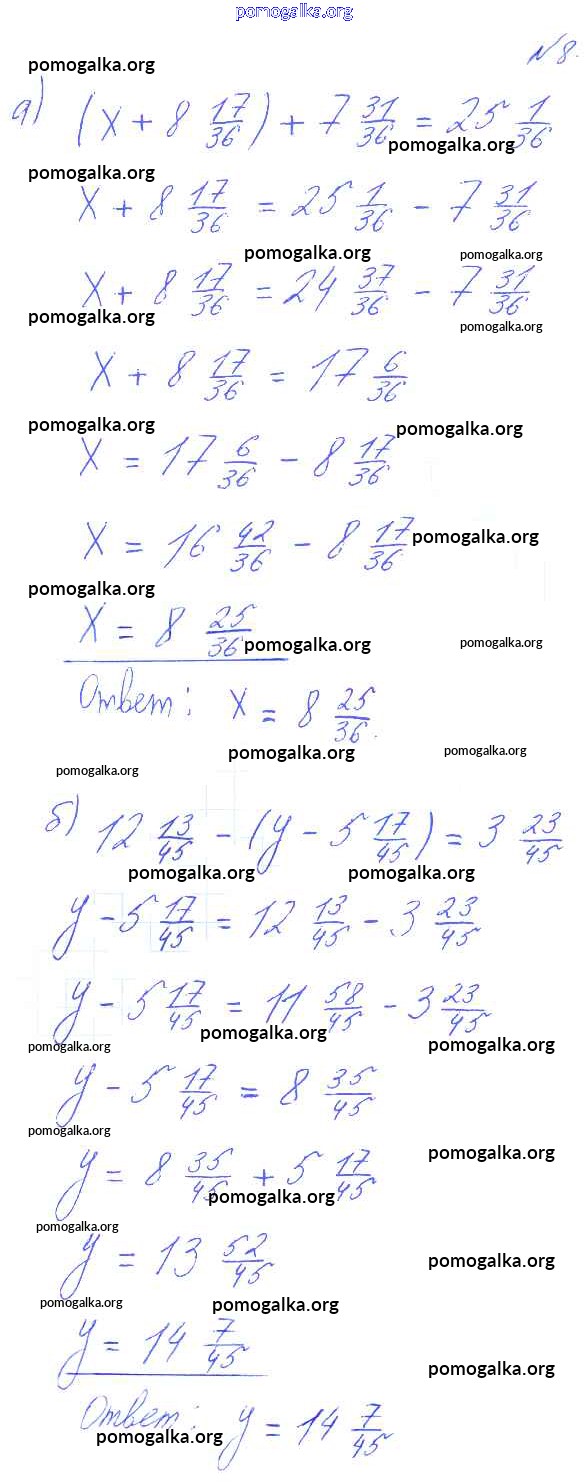 pomogalka.org
№8.
pomogalka.org
а) (x + 8 17/36) + 7 31/36 = 25 1/36
pomogalka.org
pomogalka.org
x + 8 17/36 = 25 1/36 - 7 31/36
pomogalka.org pomogalka.org
x + 8 17/36 = 24 37/36 - 7 31/36
pomogalka.org pomogalka.org
x + 8 17/36 = 17 6/36
pomogalka.org pomogalka.org
x = 17 6/36 - 8 17/36
x = 16 42/36 - 8 17/36
pomogalka.org
pomogalka.org
x = 8 25/36
pomogalka.org pomogalka.org
Ответ: x = 8 25/36.
pomogalka.org pomogalka.org
pomogalka.org
б) 12 13/45 - (y - 5 17/45) = 3 23/45
pomogalka.org pomogalka.org
y - 5 17/45 = 12 13/45 - 3 23/45
y - 5 17/45 = 11 58/45 - 3 23/45
pomogalka.org pomogalka.org pomogalka.org
y - 5 17/45 = 8 35/45
pomogalka.org
pomogalka.org
y = 8 35/45 + 5 17/45
pomogalka.org
pomogalka.org
y = 13 52/45
pomogalka.org
pomogalka.org pomogalka.org
y = 14 7/45
pomogalka.org
Ответ: y = 14 7/45
pomogalka.org